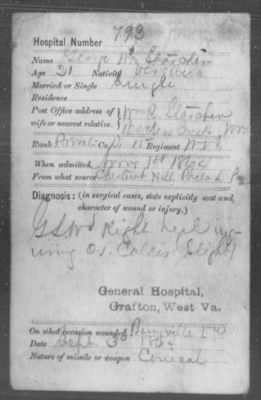 793
Hospital Number
Name George W. Starcher
Age 21 Nativity Virginia
Married or Single Single
Residence
Post Office address of Wm R. Starcher
wife or nearest relative. Creek
Rank Private Co. 11 Regiment
When admitted 1st 1864
From what source Chestnut Hill Phila Pa
Diagnosis: (in surgical cases, state explicitly seat and
character of wound or injury.)
G.S.W. Right heel
Os. Calcis Slight
General Hospital,
Grafton, West Va.
On what occasion wounded, Berryville Va
Date Sept. 3d 1864
Nature of missile or weapon Conical